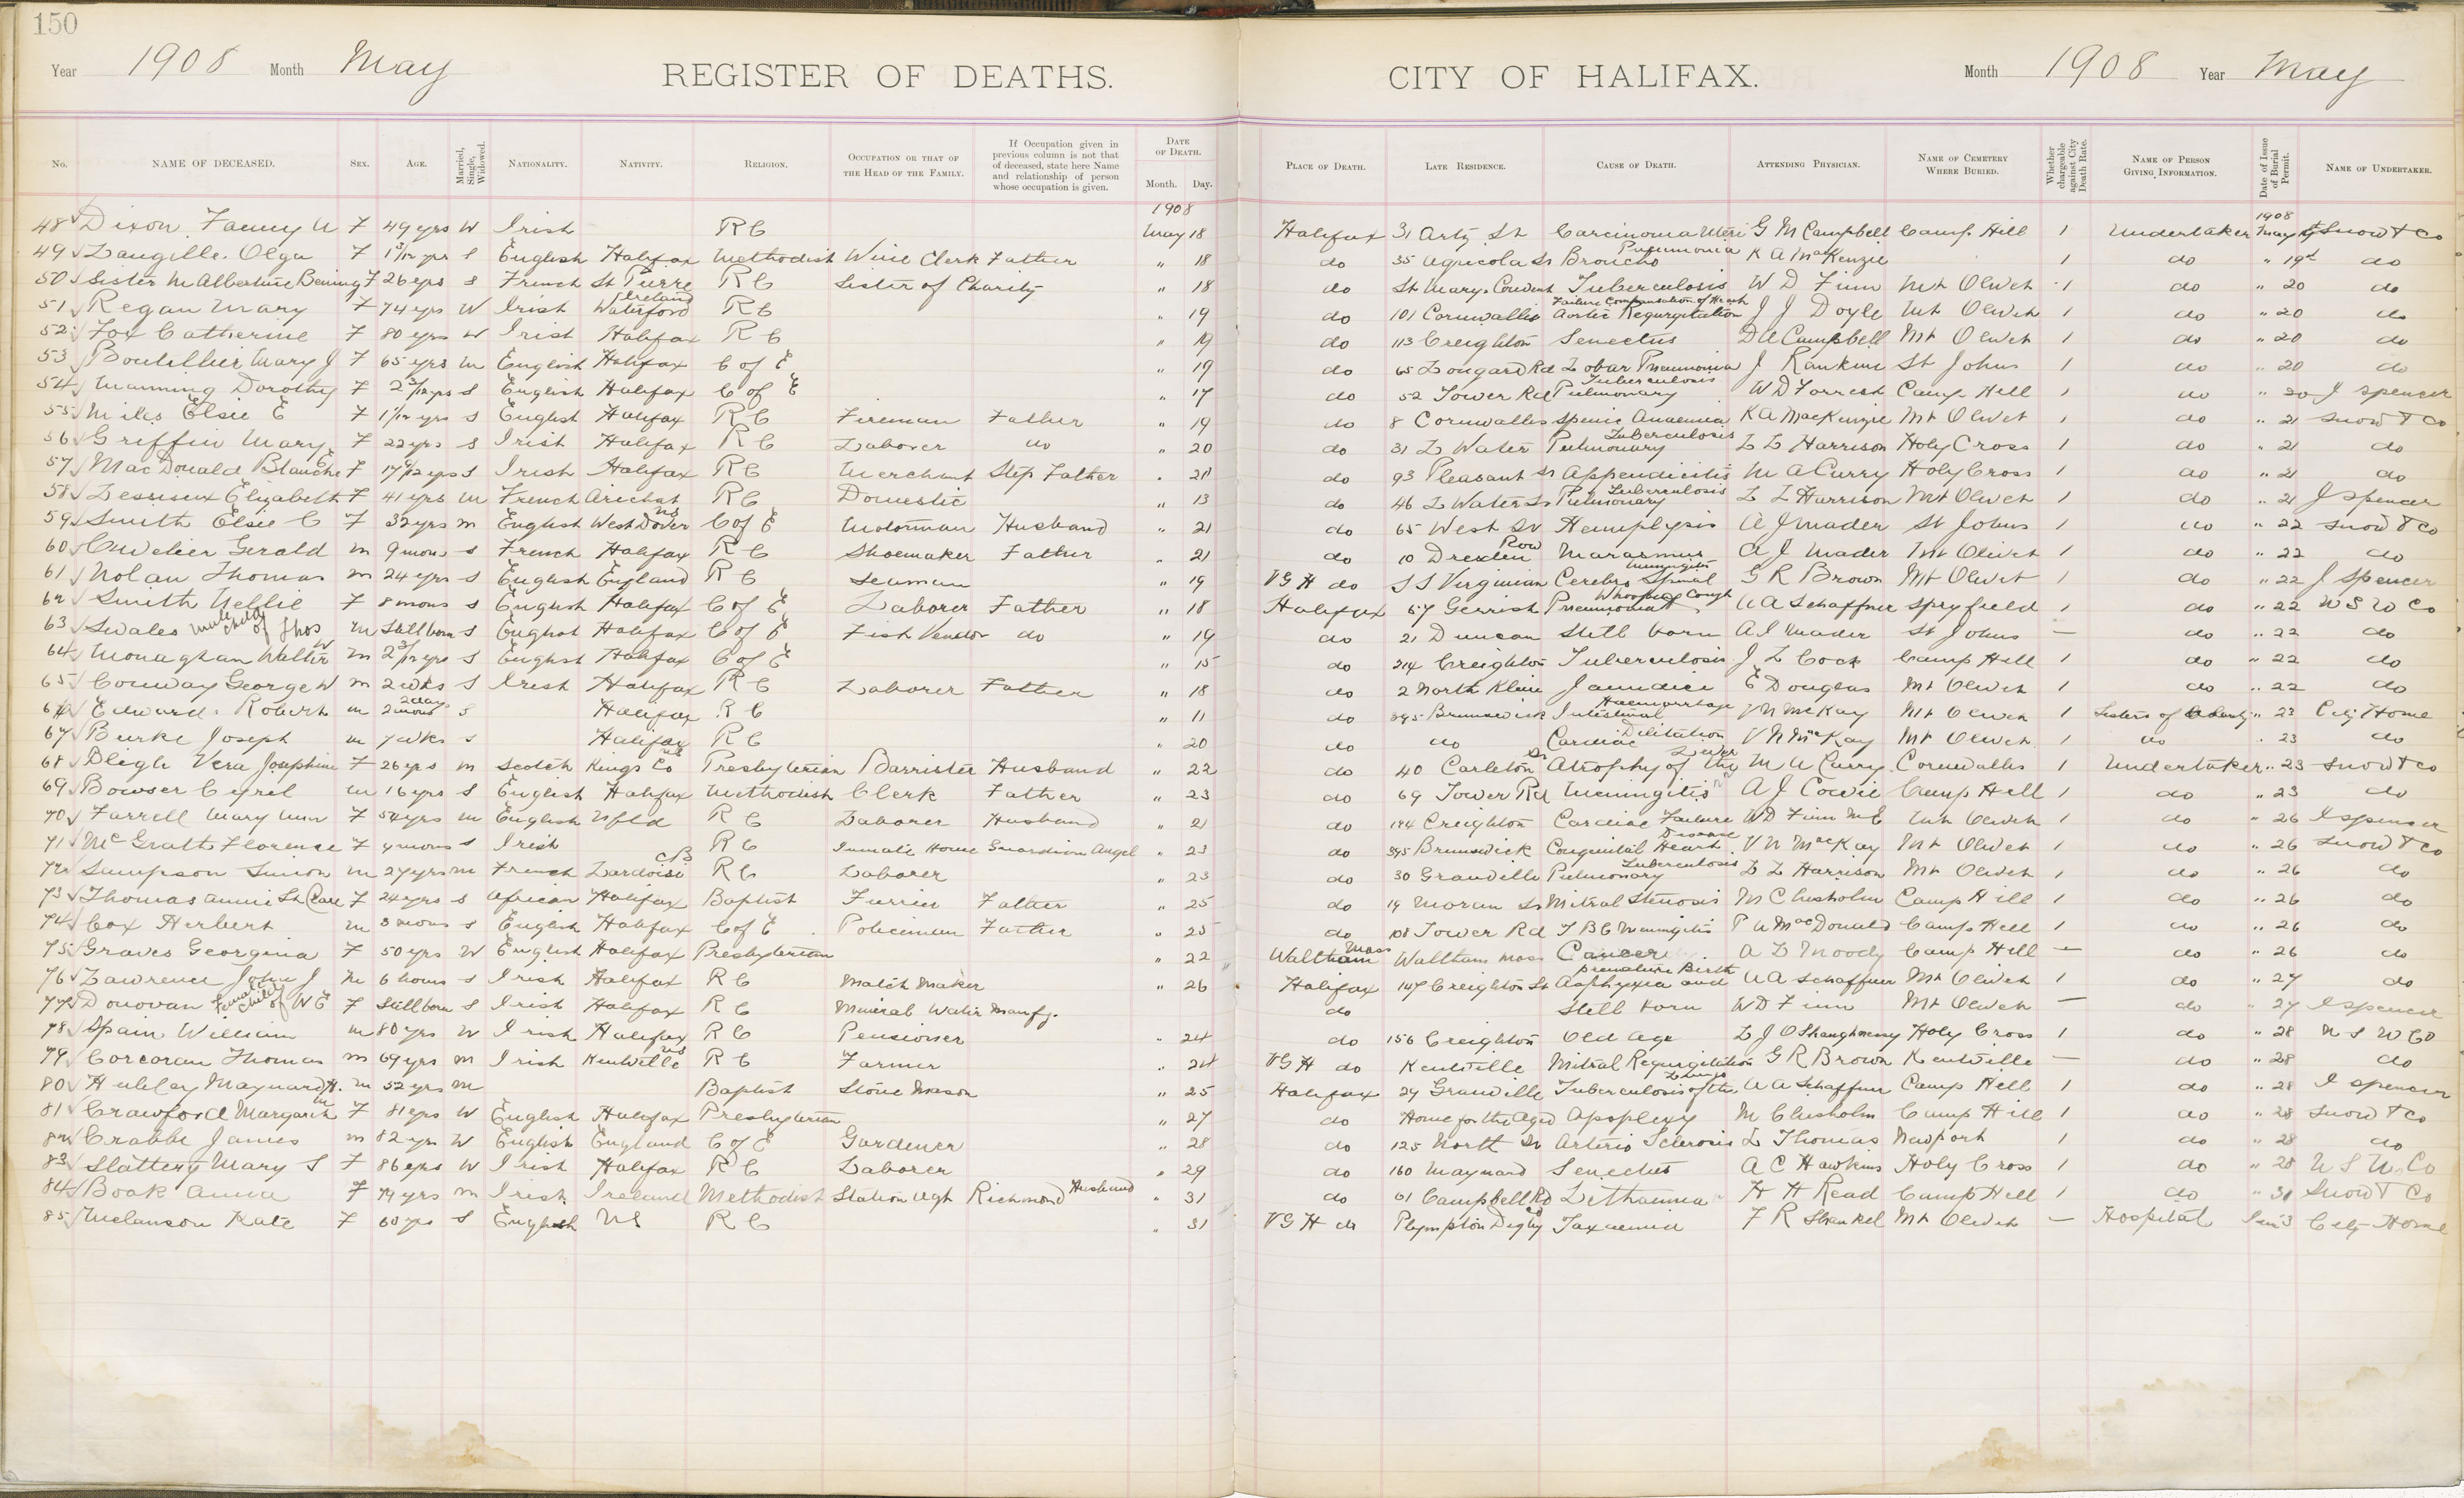 150
Year 1908 Month May REGISTER OF DEATHS. CITY OF HALIFAX. Month 1908 Year May
No. NAME OF DECEASED. SEX. AGE. Married, Single, Widowed. NATIONALITY. NATIVITY. RELIGION. OCCUPATION OR THAT OF THE HEAD OF THE FAMILY. If Occupation given in previous column is not that of deceased, state here Name and relationship of person whose occupation is given. DATE OF DEATH. Month. Day. PLACE OF DEATH. LATE RESIDENCE. CAUSE OF DEATH. ATTENDING PHYSICIAN. NAME OF CEMETERY WHERE BURIED. Whether chargeable against City Death Rate. NAME OF PERSON GIVING INFORMATION. Date of Issue of Burial Permit. NAME OF UNDERTAKER.
1908 1908
48 Dixon Fanny F 49 yrs W Irish R C May 18 Halifax 31 Arty St Carcinoma Uteri G M Campbell Camp Hill 1 Undertaker May Snow & Co
49 Langille Olga F 1 3/12 yrs S English Halifax Methodist Wine Clerk Father " 18 do 35 Agricola St Broncho Pneumonia K A MacKenzie 1 do " 19 do
50 Sister M Albertine F 26 yrs S French St Pierre R C Sister of Charity " 18 do St Marys Convent Tuberculosis W D Finn Mt Olivet 1 do " 20 do
51 Regan Mary F 74 yrs W Irish Waterford Ireland R C " 19 do 101 Cornwallis Failure Compensation of Heart Aortic Regurgitation J J Doyle Mt Olivet 1 do " 20 do
52 Fox Catherine F 80 yrs W Irish Halifax R C " 19 do 113 Creighton Senectus D A Campbell Mt Olivet 1 do " 20 do
53 Boutillier Mary J F 65 yrs M English Halifax C of E " 19 do 65 Longard Rd Lobar Pneumonia J Rankine St Johns 1 do " 20 do
54 Manning Dorothy F 2 3/12 yrs S English Halifax C of E " 17 do 52 Tower Rd Pulmonary Tuberculosis W D Forrest Camp Hill 1 do " 20 J Spencer
55 Miles Elsie E F 1 1/12 yrs S English Halifax R C Fireman Father " 19 do 8 Cornwallis Spenic Anaemia K A MacKenzie Mt Olivet 1 do " 21 Snow & Co
56 Griffin Mary F 22 yrs S Irish Halifax R C Laborer do " 20 do 31 L Water Pulmonary Tuberculosis L L Harrison Holy Cross 1 do " 21 do
57 MacDonald Blanche E F S Irish Halifax R C Merchant Step Father " 21 do 93 Pleasant St Appendicitis M A Curry Holy Cross 1 do " 21 do
58 Elizabeth F 41 yrs M French Arichat R C Domestic " 13 do 46 L Water St Pulmonary Tuberculosis L L Harrison Mt Olivet 1 do " 21 J Spencer
59 Smith Elsie C F 32 yrs M English West Dover NS C of E Motorman Husband " 21 do 65 West St A J Mader St Johns 1 do " 22 Snow & Co
60 Gerald M 9 mons S French Halifax R C Shoemaker Father " 21 do 10 Dresden Row Marasmus A J Mader Mt Olivet 1 do " 22 do
61 Nolan Thomas M 24 yrs S English England R C Seaman " 19 V G H do S S Virginian Cerebro Spinal Meningitis G R Brown Mt Olivet 1 do " 22 J Spencer
62 Smith Nellie F 8 mons S English Halifax C of E Laborer Father " 18 Halifax 57 Gerrish Pneumonia & Whooping Cough A A Schaffner Spryfield 1 do " 22 N S U Co
63 Swales male child of Thos M Stillborn S English Halifax C of E Fish Vendor do " 19 do 21 Duncan Still born A I Mader St Johns — do " 22 do
64 Monaghan Walter W M 2 3/12 yrs S English Halifax C of E " 15 do 214 Creighton Tuberculosis J L Cock Camp Hill 1 do " 22 do
65 Conway George W M 2 wks S Irish Halifax R C Laborer Father " 18 do 2 North Kline Jaundice E Douglas Mt Olivet 1 do " 22 do
66 Edward Robert M 2 mons 2 days S Halifax R C " 11 do 395 Brunswick Intestinal Haemorrhage V N McKay Mt Olivet 1 Sisters of Charity " 23 City Home
67 Burke Joseph M 7 wks S Halifax R C " 20 do do Cardiac Dilitation V N McKay Mt Olivet 1 do " 23 do
68 Bligh Vera Josephine F 26 yrs M Scotch Kings Co NS Presbyterian Barrister Husband " 22 do 40 Carleton St Atrophy of the Liver M A Curry Cornwallis 1 Undertaker " 23 Snow & Co
69 Bowser Cyril M 16 yrs S English Halifax Methodist Clerk Father " 23 do 69 Tower Rd Meningitis A J Cowie Camp Hill 1 do " 23 do
70 Farrell Mary Ann F 54 yrs M English Nfld R C Laborer Husband " 21 do 184 Creighton Cardiac Failure W D Finn M E Mt Olivet 1 do " 26 J Spencer
71 McGrath Florence F 4 mons S Irish R C Inmate Home Guardian Angel " 23 do 395 Brunswick Congenital Heart Disease V N MacKay Mt Olivet 1 do " 26 Snow & Co
72 Sampson Simon M 27 yrs M French Lardoise C B R C Laborer " 23 do 30 Granville Pulmonary Tuberculosis L L Harrison Mt Olivet 1 do " 26 do
73 Thomas Annie St Clare F 24 yrs S African Halifax Baptist Furrier Father " 25 do 19 Moran St Mitral Stenosis M Chisholm Camp Hill 1 do " 26 do
74 Cox Herbert M 3 mons S English Halifax C of E Policeman Father " 25 do 108 Tower Rd T B C Meningitis P A MacDonald Camp Hill 1 do " 26 do
75 Graves Georgina F 50 yrs W English Halifax Presbyterian " 22 Waltham Mass Waltham Mass Cancer A L Moody Camp Hill — do " 26 do
76 Lawrence John J M 6 hours S Irish Halifax R C Match Maker " 26 Halifax 147 Creighton St Asphyxia and premature Birth A A Schaffner Mt Olivet 1 do " 27 do
77 Donovan female child of W E F Stillborn S Irish Halifax R C Mineral Water Manfg. do Still born W D Finn Mt Olivet — do " 27 J Spencer
78 Spain William M 80 yrs W Irish Halifax R C Pensioner " 24 do 156 Creighton Old Age L J O'Shaughnessy Holy Cross 1 do " 28 N S U Co
79 Corcoran Thomas M 69 yrs M Irish Kentville NS R C Farmer " 24 V G H do Kentville Mitral Regurgitation G R Brown Kentville — do " 28 do
80 Hubley Maynard H. M 52 yrs M Baptist Stone Mason " 25 Halifax 29 Granville Tuberculosis of the Lungs A A Schaffner Camp Hill 1 do " 28 J Spencer
81 Crawford Margaret M F 81 yrs W English Halifax Presbyterian " 27 do Home for the Aged Apoplexy M Chisholm Camp Hill 1 do " 28 Snow & Co
82 Crabbe James M 82 yrs W English England C of E Gardener " 28 do 125 North St Arterio Sclerosis L Thomas Newport 1 do " 28 do
83 Slattery Mary S F 86 yrs W Irish Halifax R C Laborer " 29 do 160 Maynard Senectus A C Hawkins Holy Cross 1 do " 28 N S U Co
84 Boak Anna F 79 yrs M Irish Ireland Methodist Station Agt Richmond Husband " 31 do 61 Campbell Rd H H Read Camp Hill 1 do " 31 Snow & Co
85 Melanson Kate F 60 yrs S English NS R C " 31 V G H do Plympton Digby Co Toxaemia F R Shankel Mt Olivet — Hospital Jun 3 City Home